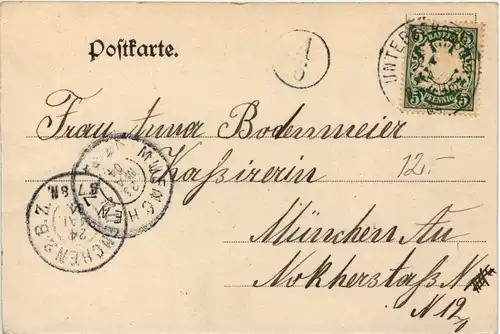 Postkarte.
BAYERN
5 5
PFENNIG
Frau Anna Bodenmeier
Kassirerin
12.-
München Au
Nokherstaß N
N 12
MUENCHEN
MUENCHEN 2 B.Z.
24